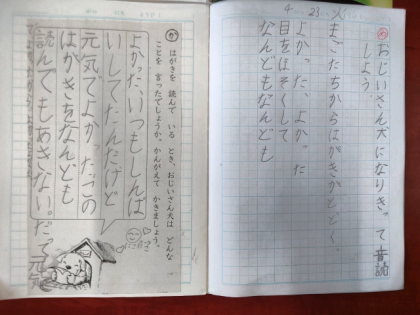 4 23 火
め おじいさん犬になりきって音読
しよう。
まごたちからはがきがとどく
よかった、よかった
目をほそくして
なんどもなんども
か はがきを 読んで いる とき、おじいさん犬は どんな
ことを 言ったでしょうか。かんがえて かきましょう。
よかった、いつもしんぱ
いしてたんだけど
元気でよかった。この
はがきをなんども
読んでもあきない。だって元気